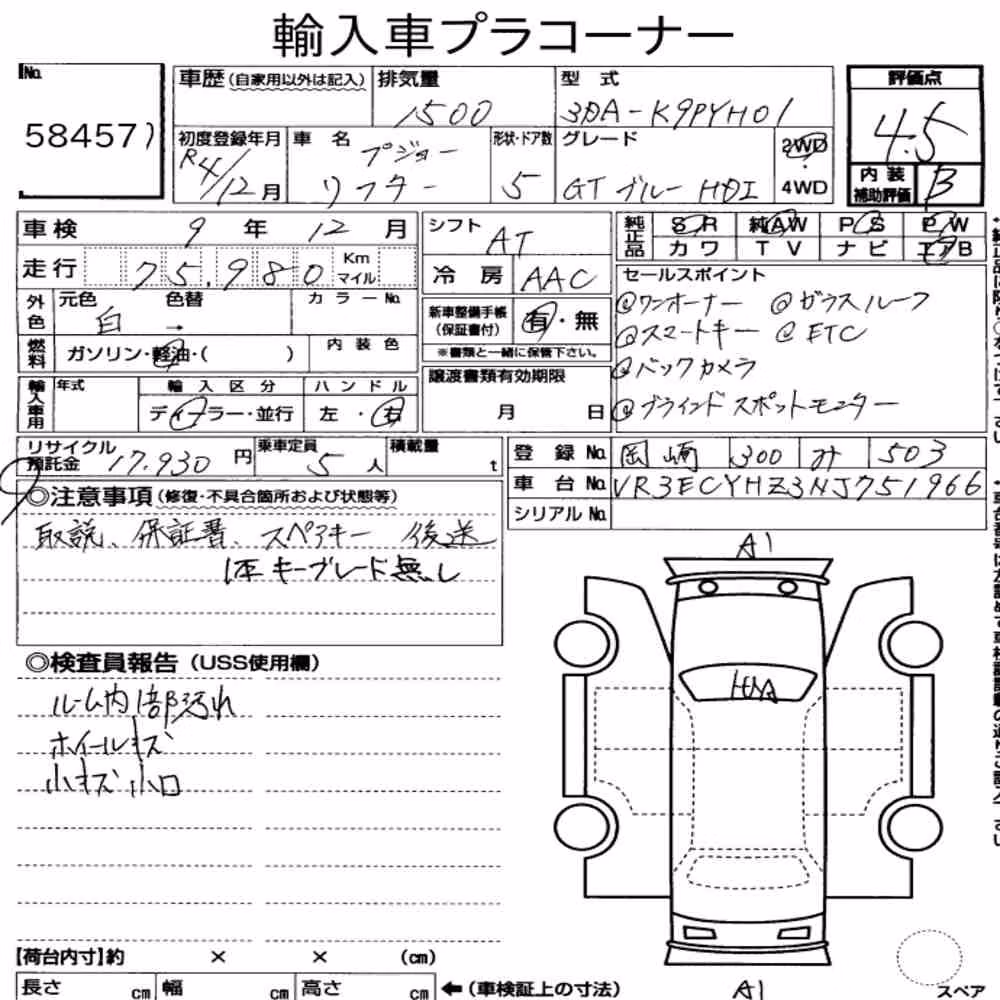 輸入車プラコーナー
No.
58457)
車歴(自家用以外は記入)
排気量
1500
型 式
3DA-K9PYH01
評価点
4.5
内装補助評価
B
初度登録年月
R4/12月
車名
プジョー
リフター
形状・ドア数
5
グレード
GT ブルー HDI
2WD
4WD
車検 9年 12月
走行 75,980 Km マイル
外色 元色 白 → 色替 カラーNo.
燃料 ガソリン・軽油・( ) 内装色
輸入車用 年式 輸入区分 ディーラー・並行 ハンドル 左・右
シフト AT
冷房 AAC
新車整備手帳(保証書付) 有・無
※書類と一緒に保管下さい。
譲渡書類有効期限
月 日
純正品 SR 純AW PS PW
カワ TV ナビ エアB
セールスポイント
@ワンオーナー @ガラスルーフ
@スマートキー @ETC
@バックカメラ
@ブラインドスポットモニター
リサイクル預託金 17,930円 乗車定員 5人 積載量 t
登録No. 岡崎 300 み 503
車台No. VR3ECYHZ3NJ751966
シリアルNo.
◎注意事項(修復・不具合箇所および状態等)
取説、保証書、スペアキー 後送
1本キーブレード無し
◎検査員報告(USS使用欄)
ルーム内1部汚れ
ホイールキズ
小キズ 小凹
A1
A1
【荷台内寸】約 × × (cm)
長さ cm 幅 cm 高さ cm ←(車検証上の寸法)
スペア